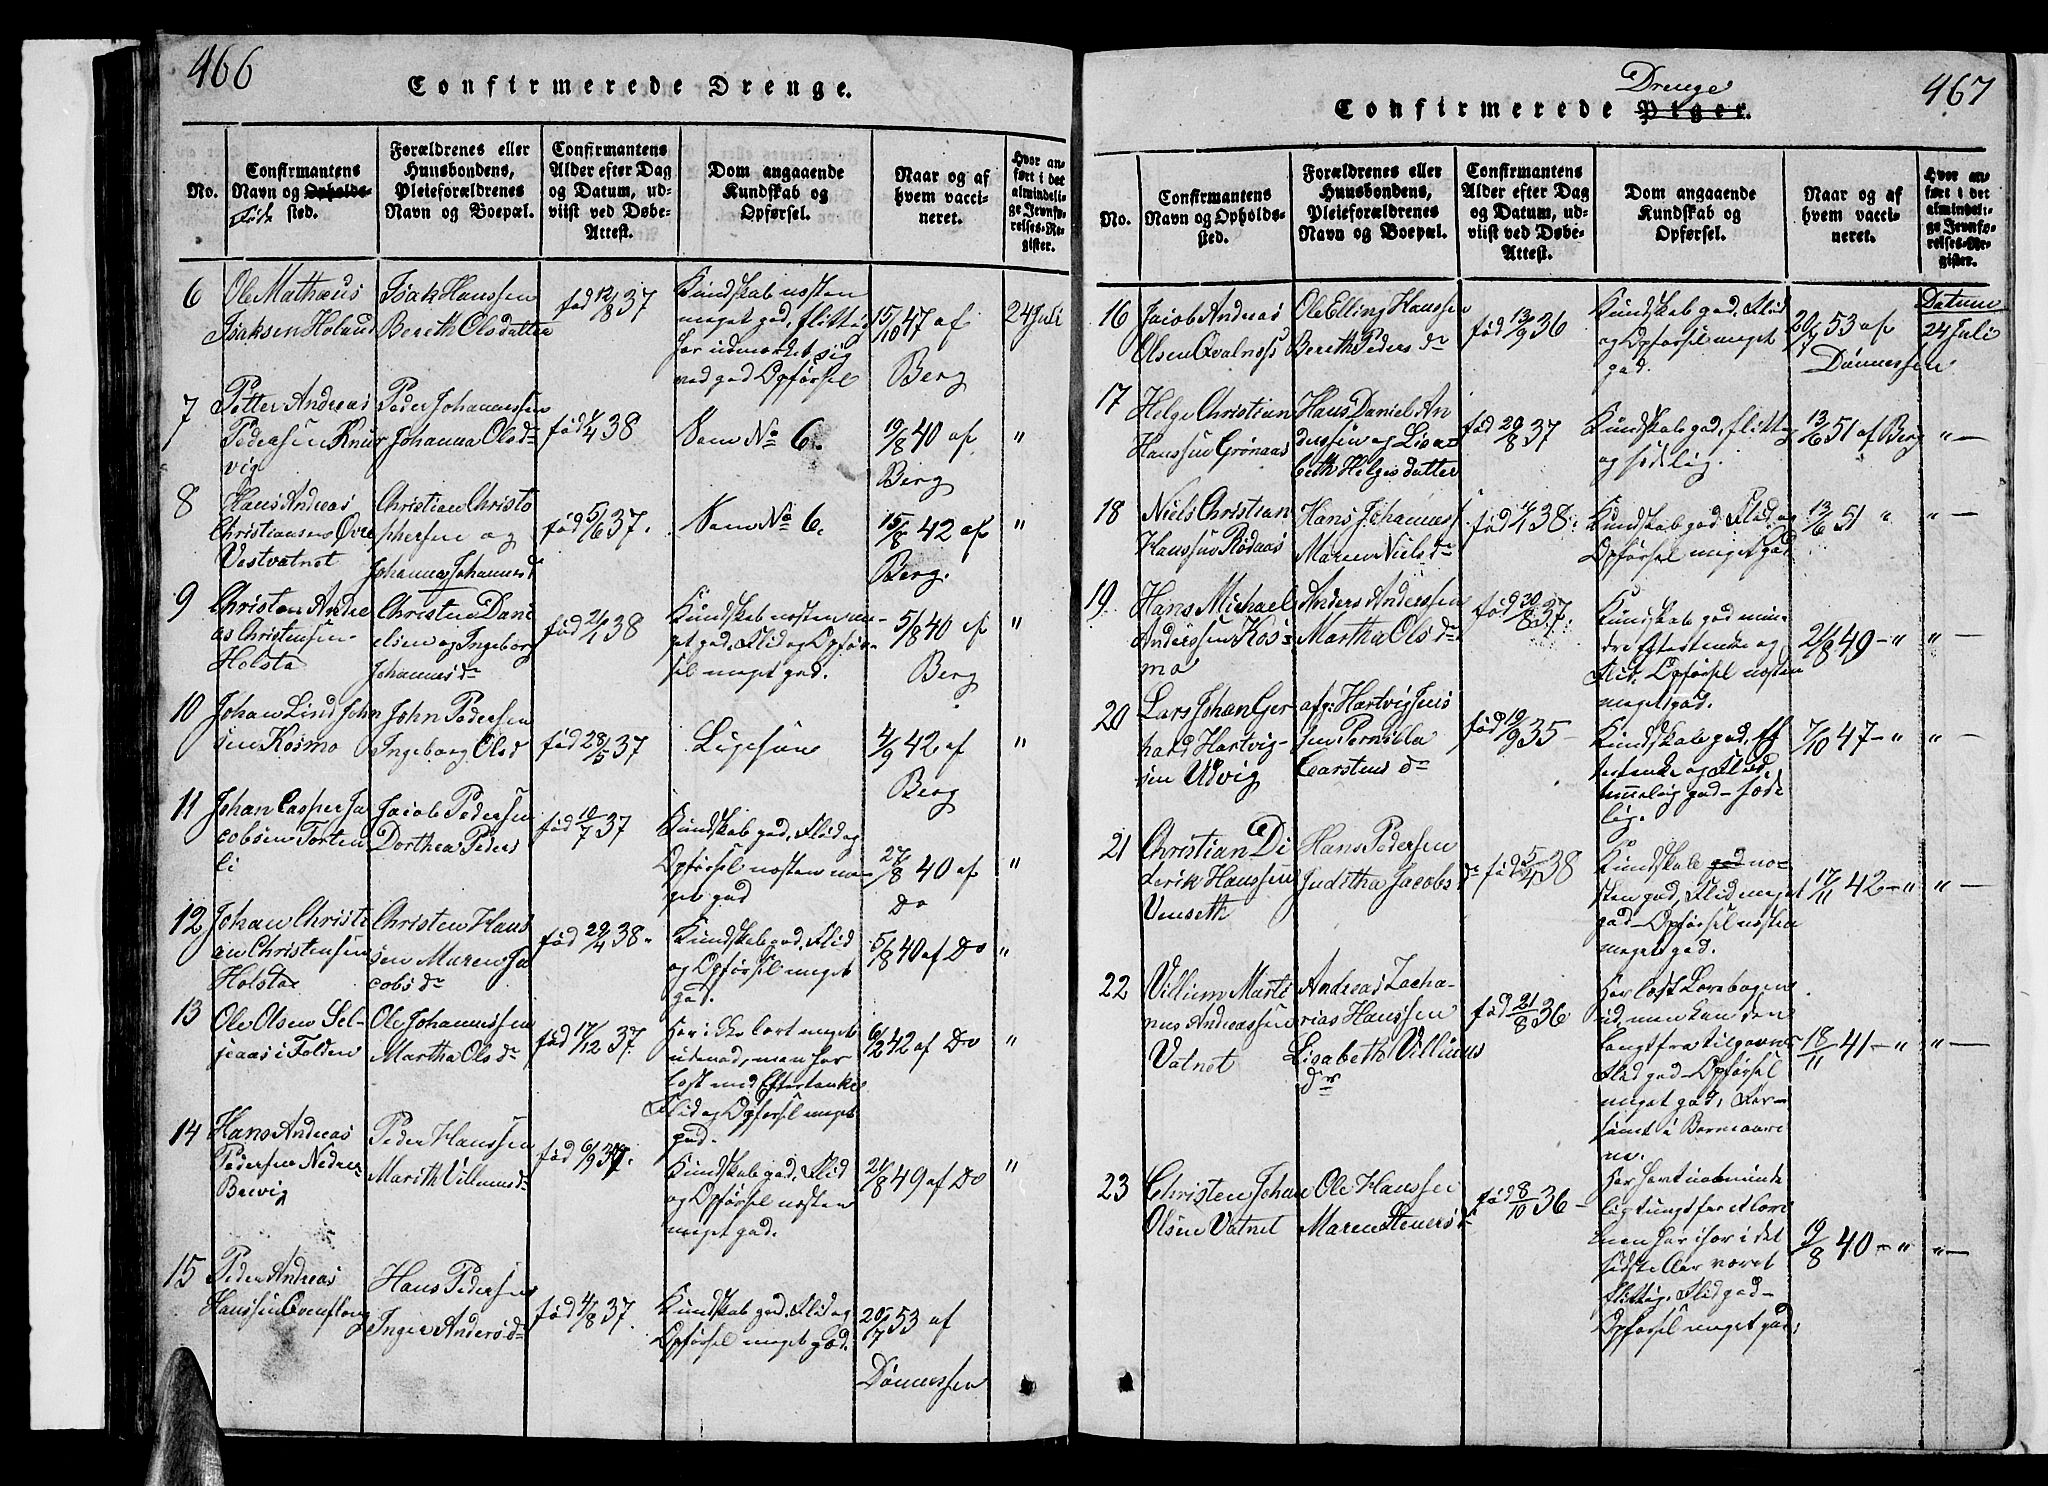 466
Confirmerede Drenge.
No.
Confirmantens
Navn og Opholds-
sted.
Forældrenes eller
Huusbondens,
Pleieforældrenes
Navn og Boepæl.
Confirmantens
Alder efter Dag
og Datum, ud-
viist ved Døbe-
Attest.
Dom angaaende
Kundskab og
Opførsel.
Naar og af
hvem vacci-
neret.
Hvor an-
ført i det
almindeli-
ge Jevnfø-
relses-Re-
gister.
6
Ole Mathæus
Isaksen Holand
Isak Hanssen
Bereth Olsdatter
fød 12/8 37
Kundskab næsten
meget god, flittig
har udmærket sig
ved god Opførsel
15/10 47 af
Berg
24 Juli
7
Petter Andreas
Pedersen Knar
vig
Peder Johannessen
Johanna Olsd
fød 7/4 38
Som No 6.
19/8 40 af
Berg
"
8
Hans Andreas
Christiansen Øvre
Vestvatnet
Christian Christo
phersen og
Johanna Johannesd
fød 5/6 37.
Som No 6.
15/8 42 af
Berg.
"
9
Christen Andre
as Christensen
Holstad
Christen Dani
elsen og Ingeborg
Johannesd
fød 21/1 38
Kundskab næsten me-
get god. Flid og Opfør-
sel meget god.
5/8 40 af
Berg
"
10
Johan Lind John
sen Kosmo
John Pedersen
Ingeborg Olsd
fød 28/5 37
Ligesaa
4/9 42 af
Berg
"
11
Johan Casper Ja
cobsen Torten
li
Jacob Pedersen
Dorthea Peders
fød 10/7 37
Kundskab god. Flid og
Opførsel næsten me-
get god
27/8 40 af
Do
"
12
Johan Christi
an Christensen
Holstad
Christen Hans
sen Maren Ja
cobsd
fød 29/4 38.
Kundskab god, Flid
og Opførsel meget
god.
5/8 40 af Do
"
13
Ole Olsen Sel-
jeaas i Folden
Ole Johannessen
Martha Olsd
fød 17/12 37.
Har ikke lært meget
udenad, men har
læst med Eftertanke
Flid og Opførsel meget
god.
6/12 42 af Do
"
14
Hans Andreas
Pedersen Nedre
Brevig
Peder Hanssen
Marith Villumsd
fød 6/9 37.
Kundskab god. Flid
og Opførsel næsten
meget god.
21/8 49 af Do
"
15
Peder Andreas
Hanssen Evenflong
Hans Pedersen
Inger Andersd
fød 4/8 37.
Kundskab god. Flid og
Opførsel meget god.
20/7 53 af
Dønnessen
467
Drenge
Confirmerede Piger.
No.
Confirmantens
Navn og Opholds-
sted.
Forældrenes eller
Huusbondens,
Pleieforældrenes
Navn og Boepæl.
Confirmantens
Alder efter Dag
og Datum, ud-
viist ved Døbe-
Attest.
Dom angaaende
Kundskab og
Opførsel.
Naar og af
hvem vacci-
neret.
Hvor an-
ført i det
almindeli-
ge Jevnfø-
relses-Re-
gister.
Datum
16
Jacob Andreas
Olsen Qvalnæss
Ole Elling Hanssen
Bereth Peders dr
fød 13/9 36
Kundskab god. Flid
og Opførsel meget
god.
20/7 53 af
Dønnessen
24 Juli
17
Helge Christian
Hanssen Grønaas
Hans Daniel An
derssen og Lisa
beth Helgesdatter
fød 29/8 37
Kundskab god, flittig
og sædelig.
13/6 51 af Berg
" —
18
Niels Christian
Hanssen Rødaas
Hans Johanness
Maren Nielsd
fød 11/1 38.
Kundskab god. Flid og
Opførsel meget god
13/6 51 "
" —
19
Hans Michael
Anderssen Kos-
mo
Anders Anderssen
Martha Olsd
fød 30/8 37.
Kundskab god min-
dre Eftertanke og
Flid. Opførsel næsten
meget god.
21/8 49 — "
" —
20
Lars Johan Ger
hard Hartvig-
sen Udvig
afg. Hartvig Jens
sen Pernilla
Carstens dr
fød 19/9 35 —
Kundskab god, Ef
tertanke og Flid
temmelig god — sæde
lig.
7/10 47 — "
" —
21
Christian Di
derik Hanssen
Venseth
Hans Pedersen
Juditha Jacobs dr
fød 5/4 38
Kundskab god næ-
sten god, Flid meget
god — Opførsel næsten
meget god.
17/11 42 — "
" —
22
Villum Marti
nus Andreassen
Vatnet
Andreas Zacha-
rias Hanssen
Lisabeth Villums
dr
fød 21/8 36
Har læst Lærebogen
ud, men kan den
langtfra tilgavns
Flid god — Opførsel
meget god,
18/11 41 — "
" —
23
Christen Johan
Olsen Vatnet
Ole Hanssen
Maren Steners dr
fød 8/10 36 —
Har havt ualminde
ligt tungt for at lære
men har især i det
sidste Aar været
flittig. Flid god —
Opførsel meget god.
19/8 40 — "
" —